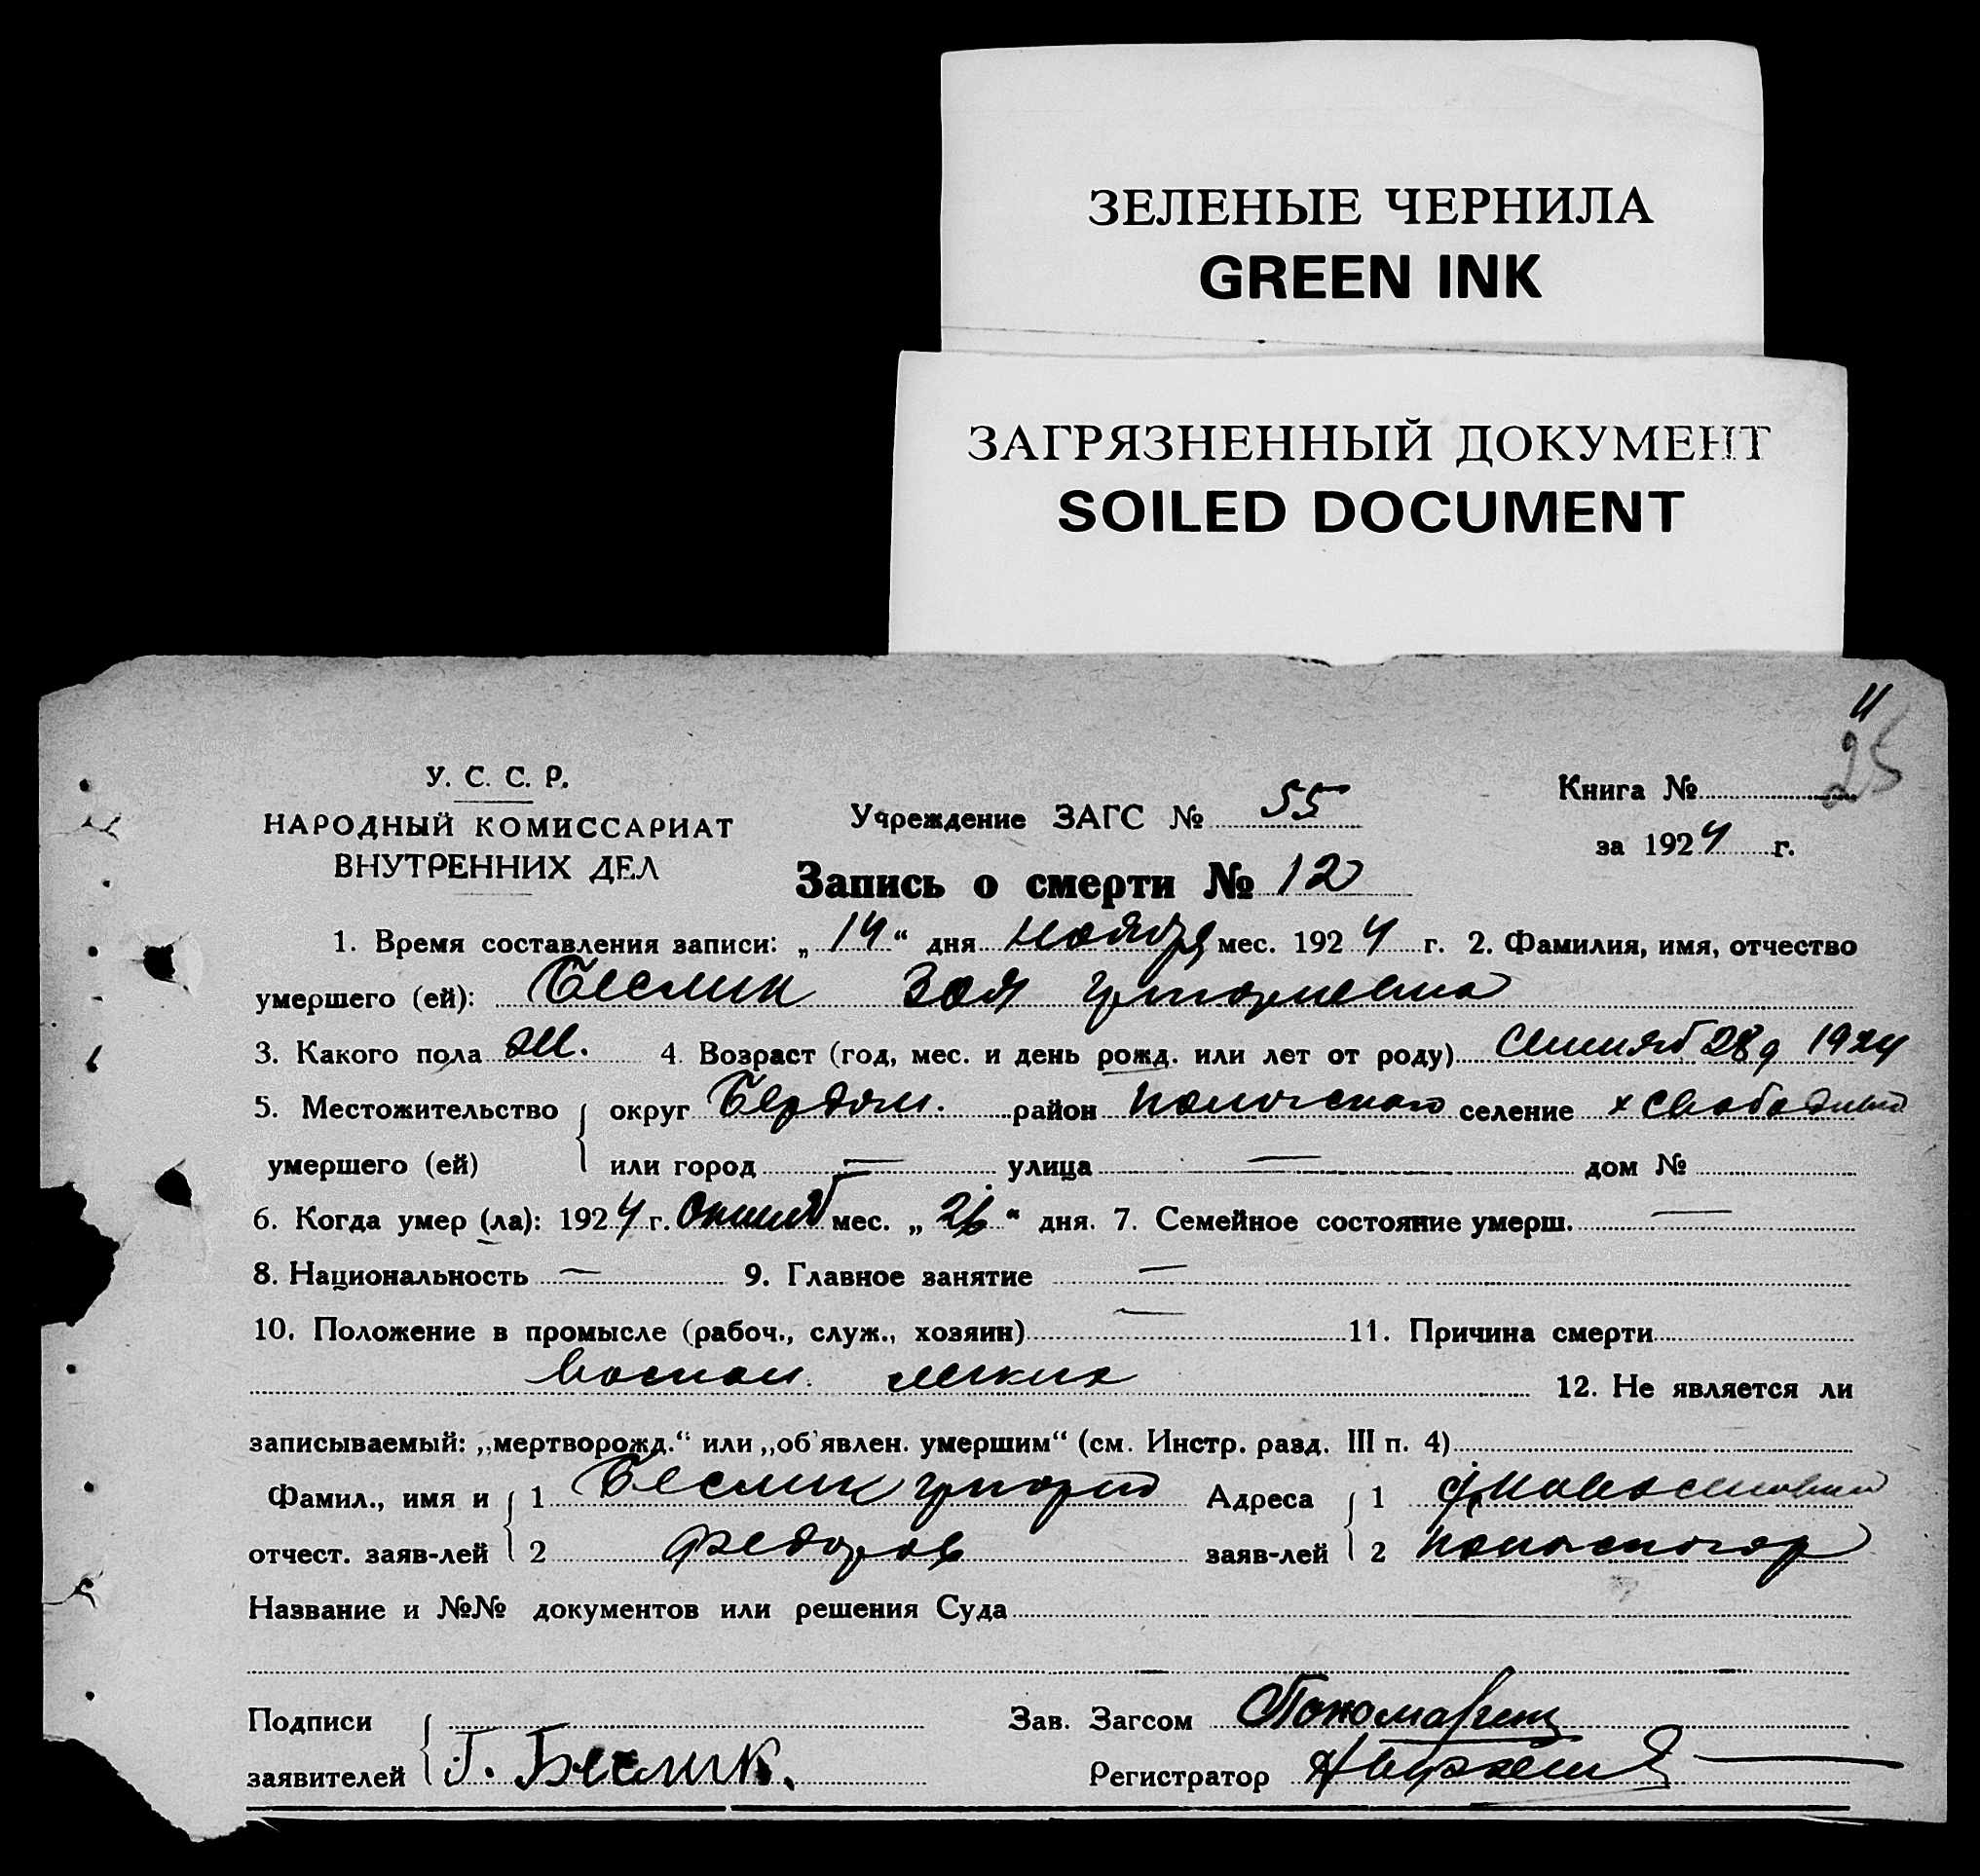 ЗЕЛЕНЫЕ ЧЕРНИЛА
GREEN INK
ЗАГРЯЗНЕННЫЙ ДОКУМЕНТ
SOILED DOCUMENT
11
25
У. С. С. Р.
НАРОДНЫЙ КОМИССАРИАТ
ВНУТРЕННИХ ДЕЛ
Учреждение ЗАГС № 55
Книга №
за 1924 г.
Запись о смерти № 12
1. Время составления записи: „14“ дня ноября мес. 1924 г. 2. Фамилия, имя, отчество
умершего (ей): Беслик Зоя Григорьевна
3. Какого пола ж. 4. Возраст (год, мес. и день рожд. или лет от роду) Сентяб 28 д 1924
5. Местожительство умершего (ей) округ Бердян. район селение х Свободный
или город — улица — дом №
6. Когда умер (ла): 1924 г. Октяб мес. „26“ дня. 7. Семейное состояние умерш. —
8. Национальность — 9. Главное занятие —
10. Положение в промысле (рабоч., служ., хозяин) — 11. Причина смерти
воспал. легких 12. Не является ли
записываемый: „мертворожд.“ или „об'явлен. умершим“ (см. Инстр. разд. III п. 4)
Фамил., имя и отчест. заяв-лей 1 Беслик Григорий Адреса заяв-лей 1
2 Федоров 2
Название и №№ документов или решения Суда
Подписи заявителей Г. Беслик.
Зав. Загсом
Регистратор